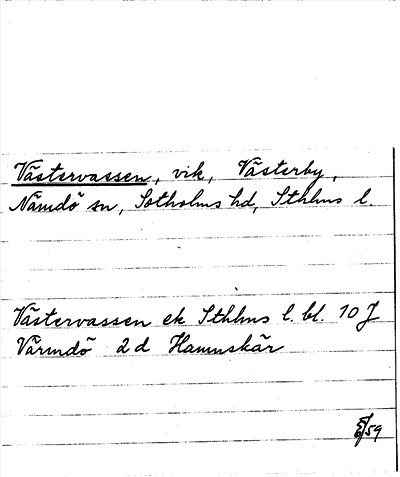 Västervassen, vik, Västerby,
Nämdö sn, Sotholms hd, Sthlms l.
Västervassen ek Sthlms l. bl. 10 J
Värmdö 2d Hamnskär
59